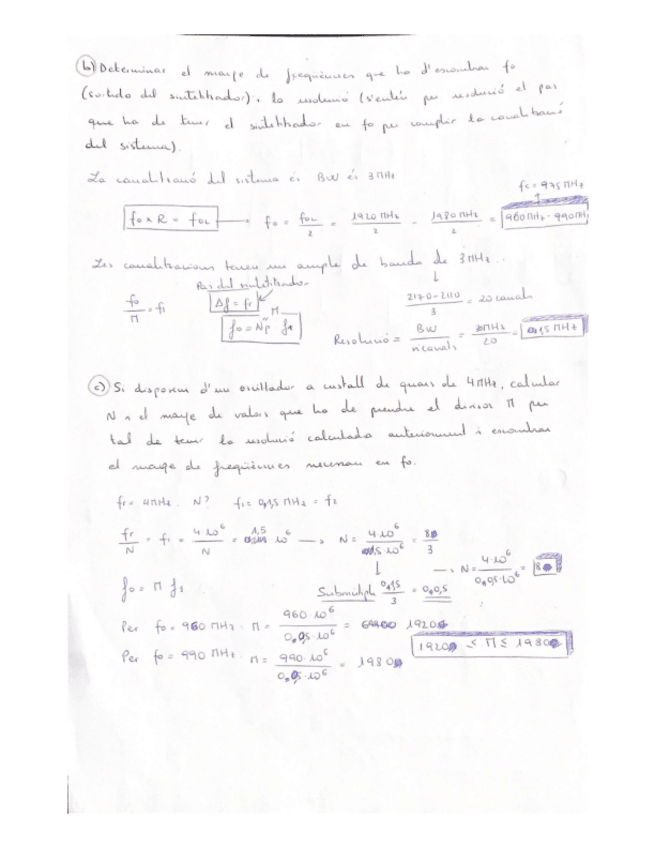 b) Determinar el marge de freqüències que ha d'escombrar fo
(sortida del sintetitzador) i la resolució (s'entén per resolució el pas
que ha de tenir el sintetitzador en fo per complir la canalització
del sistema).
La canalització del sistema és BW és 3MHz
fc = 975 MHz
fo × R = foL → fo = foL / 2 = 1920 MHz / 2 - 1980 MHz / 2 = 960 MHz - 990 MHz
Les canalitzacions tenen un ample de banda de 3MHz..
Pas del sintetitzador
fo / M = f1 Δf = fr
fo = Np f1
2170-2110 / 3 = 20 canals
Resolució = BW / n canals = 3MHz / 20 = 0,15 MHz
c) Si disposem d'un oscil·lador a cristall de quars de 4MHz, calcular
N i el marge de valors que ha de prendre el divisor M per
tal de tenir la resolució calculada anteriorment i escombrar
el marge de freqüències necessari en fo.
fr = 4MHz . N? f1 = 0,15 MHz = f2
fr / N = f1 = 4·10⁶ / N = 10⁶ → N = 4·10⁶ / 10⁶ = 80 / 3
→ N = 4·10⁶ / 0,05·10⁶ = 80
fo = M f1
Submultiple 0,15 / 3 = 0,05
Per fo = 960 MHz . M = 960·10⁶ / 0,05·10⁶ = 19200
Per fo = 990 MHz . M = 990·10⁶ / 0,05·10⁶ = 19800
19200 ≤ M ≤ 19800